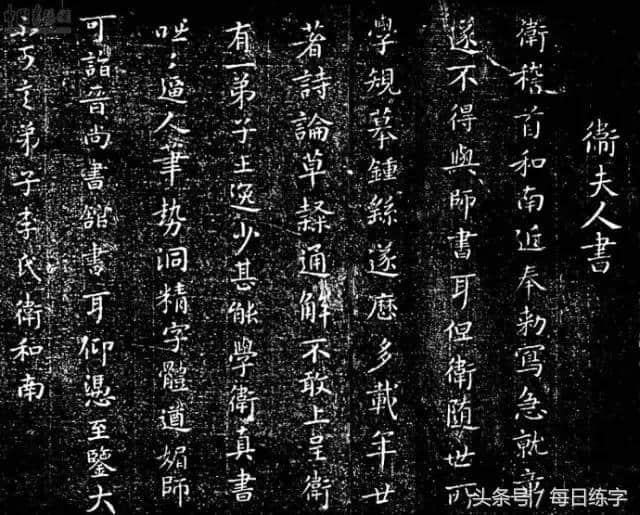 衛夫人書
衛稽首和南近奉勑寫急就章
遂不得與師書耳但衛隨世所
學規摹鍾繇遂歷多載年廿
著詩論草隸通解不敢上呈衛
有一弟子王逸少甚能學衛真書
咄〻逼人筆勢洞精字體遒媚師
可詣晉尚書館書耳仰憑至鑒大
不可言弟子李氏衛和南
头条号 / 每日练字